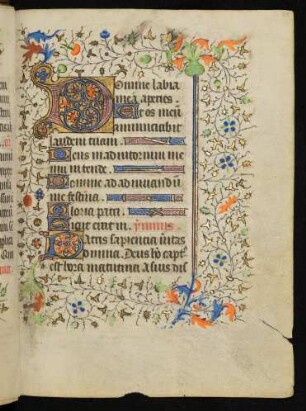 Domine labia
mea aperies
Et os meū
annunciabit
laudem tuam.
Deus in adiutoriū me
um intende.
Domine ad adiuuandū
me festina.
Gloria patri.
Sicut erat in. ymnus
Patris sapiencia ueritas
diuina. Deus hō capt9
est hora matutina A suis dis